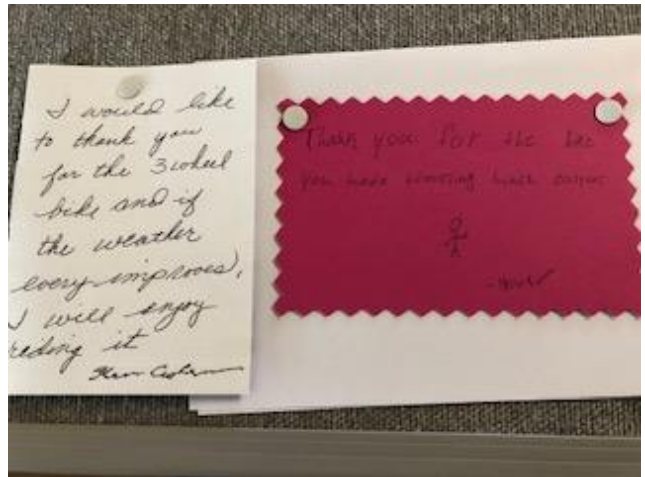 I would like
to thank you
for the 3 wheel
bike and if
the weather
every improves,
I will enjoy
reding it
Thank you for the
you have